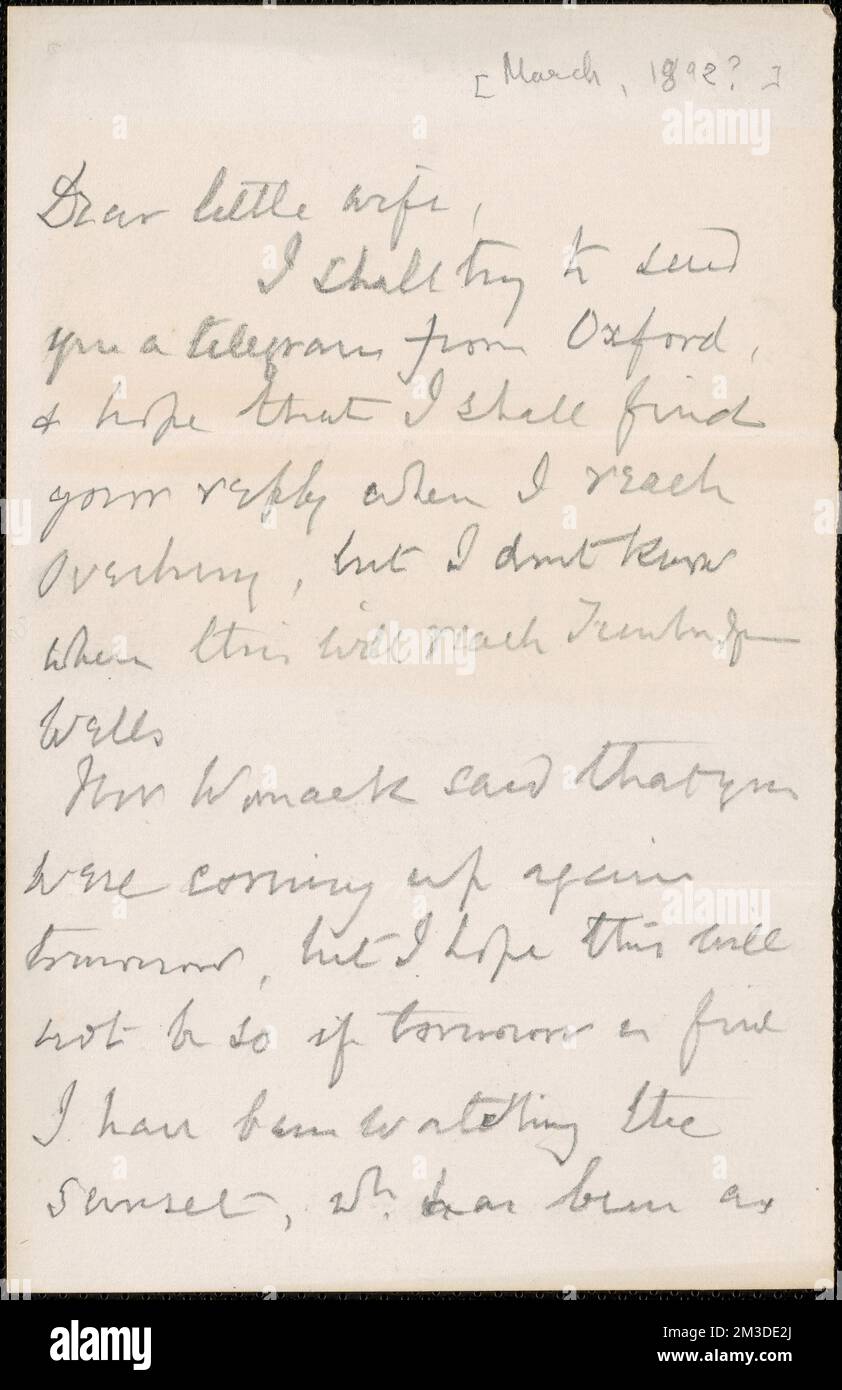 [March, 1892?]
Dear little wife,
I shall try to send
you a telegram from Oxford,
& hope that I shall find
your reply when I reach
Overbury, but I don't know
when this will reach Tunbridge
Wells
Womack said that you
were coming up again
tomorrow, but I hope this will
not be so if tomorrow is fine
I have been watching the
sunset, wh. has been as
alamy
Image ID: 2M3DE2J
www.alamy.com